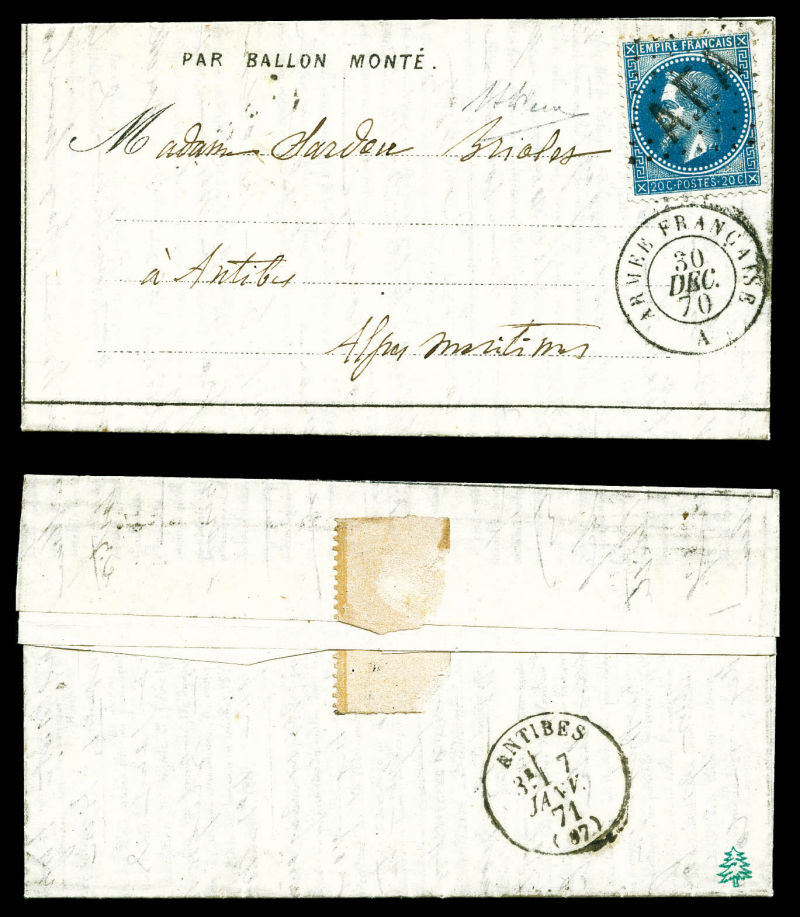 PAR BALLON MONTÉ.
EMPIRE FRANÇAIS
20 C - POSTES - 20 C
Madame Sardou Brioles
à Antibes
Alpes maritimes
ARMÉE FRANÇAISE
30
DEC.
70
A
ANTIBES
7
JANV.
71